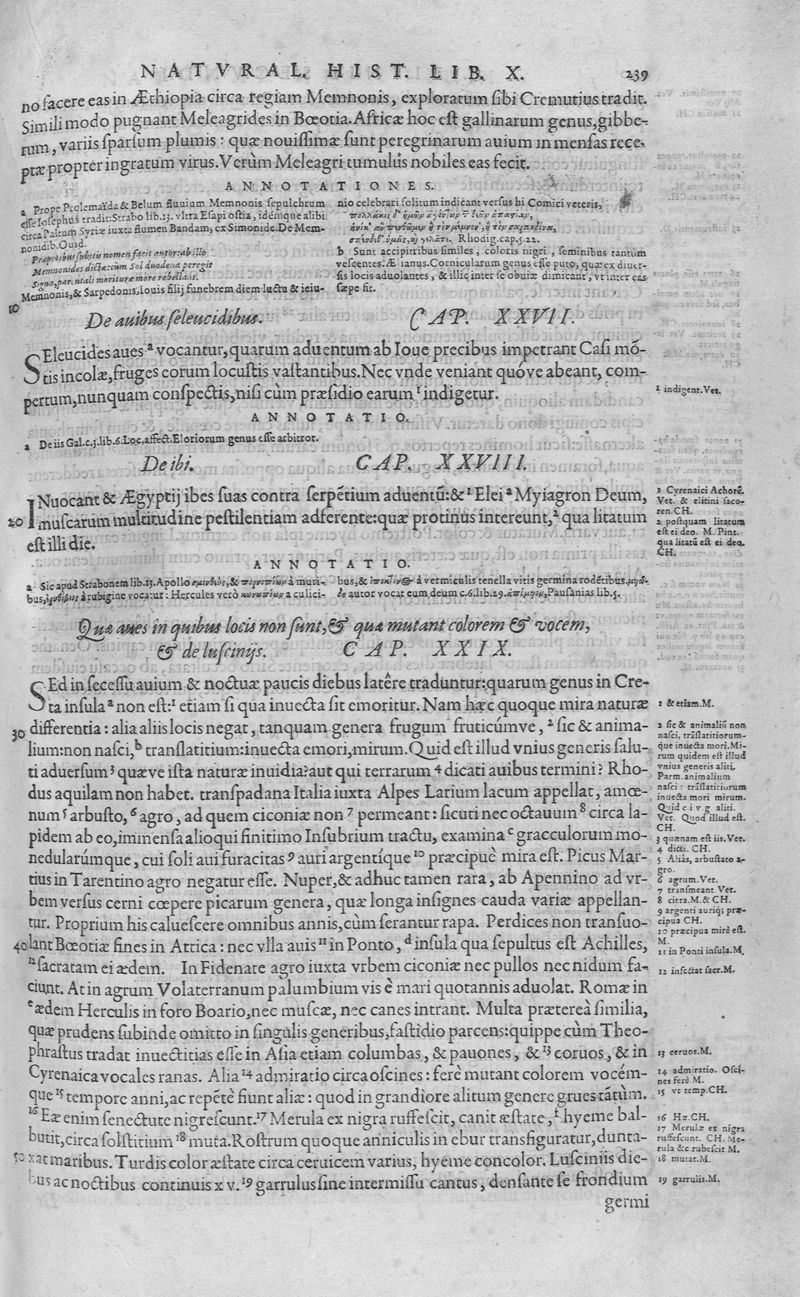 NATVRAL. HIST. LIB. X. 239
no facere eas in Æthiopia circa regiam Memnonis, exploratum sibi Cremutius tradit.
Simili modo pugnant Meleagrides in Bœotia. Africæ hoc est gallinarum genus, gibbe-
rum, variis sparsum plumis: quæ nouissimæ sunt peregrinarum auium in mensas rece-
ptæ propter ingratum virus. Verùm Meleagri tumulus nobiles eas fecit.
ANNOTATIONES.
a Prope Ptolemaïda & Belum fluuium Memnonis sepulchrum
esse Iosephus tradit: Strabo lib.15. vltra Esapi ostia, idémque alibi
circa Paltum Syriæ iuxta flumen Bandam, ex Simonide. De Mem-
nonidib. Ouid.
Præpetibus subitis nomen facit autor: ab illo
Memnonides dictæ: cum Sol duodena peregit
Signa, parentali moritura more rebellant.
Memnonis, & Sarpedonis, Iouis filij funebrem diem luctu & ieiu-
nio celebrati solitum indicant versus hi Comici veteris,
Rhodig. cap.5.22.
b Sunt accipitribus similes, coloris nigri, seminibus tantum
vescentes. Ælianus. Cornicularum genus esse puto, quæ ex diuer-
sis locis aduolantes, & illic inter se obuiæ dimicant, vt inter eas
sæpe fit.
10
De auibus seleucidibus. CAP. XXVII.
SEleucides aues a vocantur, quarum aduentum ab Ioue precibus impetrant Casi mõ-
tis incolæ, fruges eorum locustis vastantibus. Nec vnde veniant quóve abeant, com-
pertum, nunquam conspectis, nisi cùm præsidio earum 1 indigetur.
1 indigent. Vet.
ANNOTATIO.
a De iis Gal. c.3. lib.6. Loc. affect. Eloriorum genus esse arbitror.
De ibi. CAP. XXVIII.
INuocant & Ægyptij ibes suas contra serpẽtium aduentũ: & 1 Elei a Myiagron Deum,
20 muscarum multitudine pestilentiam adferente: quæ protinus intereunt, 2 qua litatum
est illi die.
1 Cyrenaici Achorẽ.
Vet. & elitini saco-
ren. CH.
2 postquam litatum
est ei deo. M. Pint.
qua litatũ est ei deo.
CH.
ANNOTATIO.
a Sic apud Strabonem lib.13. Apollo & à muri-
bus, à rubigine vocatur: Hercules verò à culici-
bus, & à vermiculis tenella vitis germina rodẽtibus.
autor vocat eum deum c.6. lib.29. Pausanias lib.5.
Quæ aues in quibus locis non sunt, & quæ mutant colorem & vocem,
& de luscinijs. CAP. XXIX.
SEd in secessu auium & noctuæ paucis diebus latêre traduntur: quarum genus in Cre-
ta insula a non est: 1 etiam si qua inuecta sit emoritur. Nam hæc quoque mira naturæ
30 differentia: alia aliis locis negat, tanquam genera frugum fruticúmve, 2 sic & anima-
lium: non nasci, b translatitium: inuecta emori, mirum. Quid est illud vnius generis salu-
ti aduersum 3 quæve ista naturæ inuidia? aut qui terrarum 4 dicati auibus termini? Rho-
dus aquilam non habet. transpadana Italia iuxta Alpes Larium lacum appellat, amœ-
num 5 arbusto, 6 agro, ad quem ciconiæ non 7 permeant: sicuti nec octauum 8 circa la-
pidem ab eo, immensa alioqui finitimo Insubrium tractu, examina c gracculorum mo-
nedularúmque, cui soli aui furacitas 9 auri argentíque 10 præcipuè mira est. Picus Mar-
tius in Tarentino agro negatur esse. Nuper, & adhuc tamen rara, ab Apennino ad vr-
bem versus cerni cœpere picarum genera, quæ longa insignes cauda variæ appellan-
tur. Proprium his caluescere omnibus annis, cùm serantur rapa. Perdices non transuo-
40 lant Bœotiæ fines in Attica: nec vlla auis 11 in Ponto, d insula qua sepultus est Achilles,
12 sacratam ei ædem. In Fidenate agro iuxta vrbem ciconiæ nec pullos nec nidum fa-
ciunt. At in agrum Volaterranum palumbium vis è mari quotannis aduolat. Romæ in
e ædem Herculis in foro Boario, nec muscæ, nec canes intrant. Multa præterea similia,
quæ prudens subinde omitto in singulis generibus, fastidio parcens: quippe cùm Theo-
phrastus tradat inuectitias esse in Asia etiam columbas, & pauones, & 13 coruos, & in
Cyrenaica vocales ranas. Alia 14 admiratio circa oscines: ferè mutant colorem vocém-
que 15 tempore anni, ac repẽtè fiunt aliæ: quod in grandiore alitum genere grues tãtùm.
16 Eæ enim senectute nigrescunt. 17 Merula ex nigra ruffescit, canit æstate, f hyeme bal-
butit, circa solstitium 18 muta. Rostrum quoque anniculis in ebur transfiguratur, dunta-
50 xat maribus. Turdis color æstate circa ceruicem varius, hyeme concolor. Lusciniis die-
bus ac noctibus continuis x v. 19 garrulus sine intermissu cantus, densante se frondium
germi
1 & etiam. M.
2 sic & animaliũ non
nasci, trãslatitiorum-
que inuecta mori. Mi-
rum quidem est illud
vnius generis aliti.
Parm. animalium
nasci: trãslatitiorum
inuecta mori mirum.
Quid c i v g aliti.
Vet. Quod illud est.
CH.
3 quænam est iis. Vet.
4 dicti. CH.
5 Aliàs, arbustato a-
gro.
6 agrum. Vet.
7 transmeant Vet.
8 citra. M. & CH.
9 argenti auriq; præ-
cipua CH.
10 præcipua mirè est.
M.
11 in Ponti insula. M.
12 infectat sacr. M.
13 ceruos. M.
14 admiratio. Osci-
nes ferè M.
15 vt temp. CH.
16 Hæ CH.
17 Merulæ ex nigra
ruffescunt. CH. Me-
rula &c rubescit M.
18 mutat. M.
19 garrulis. M.